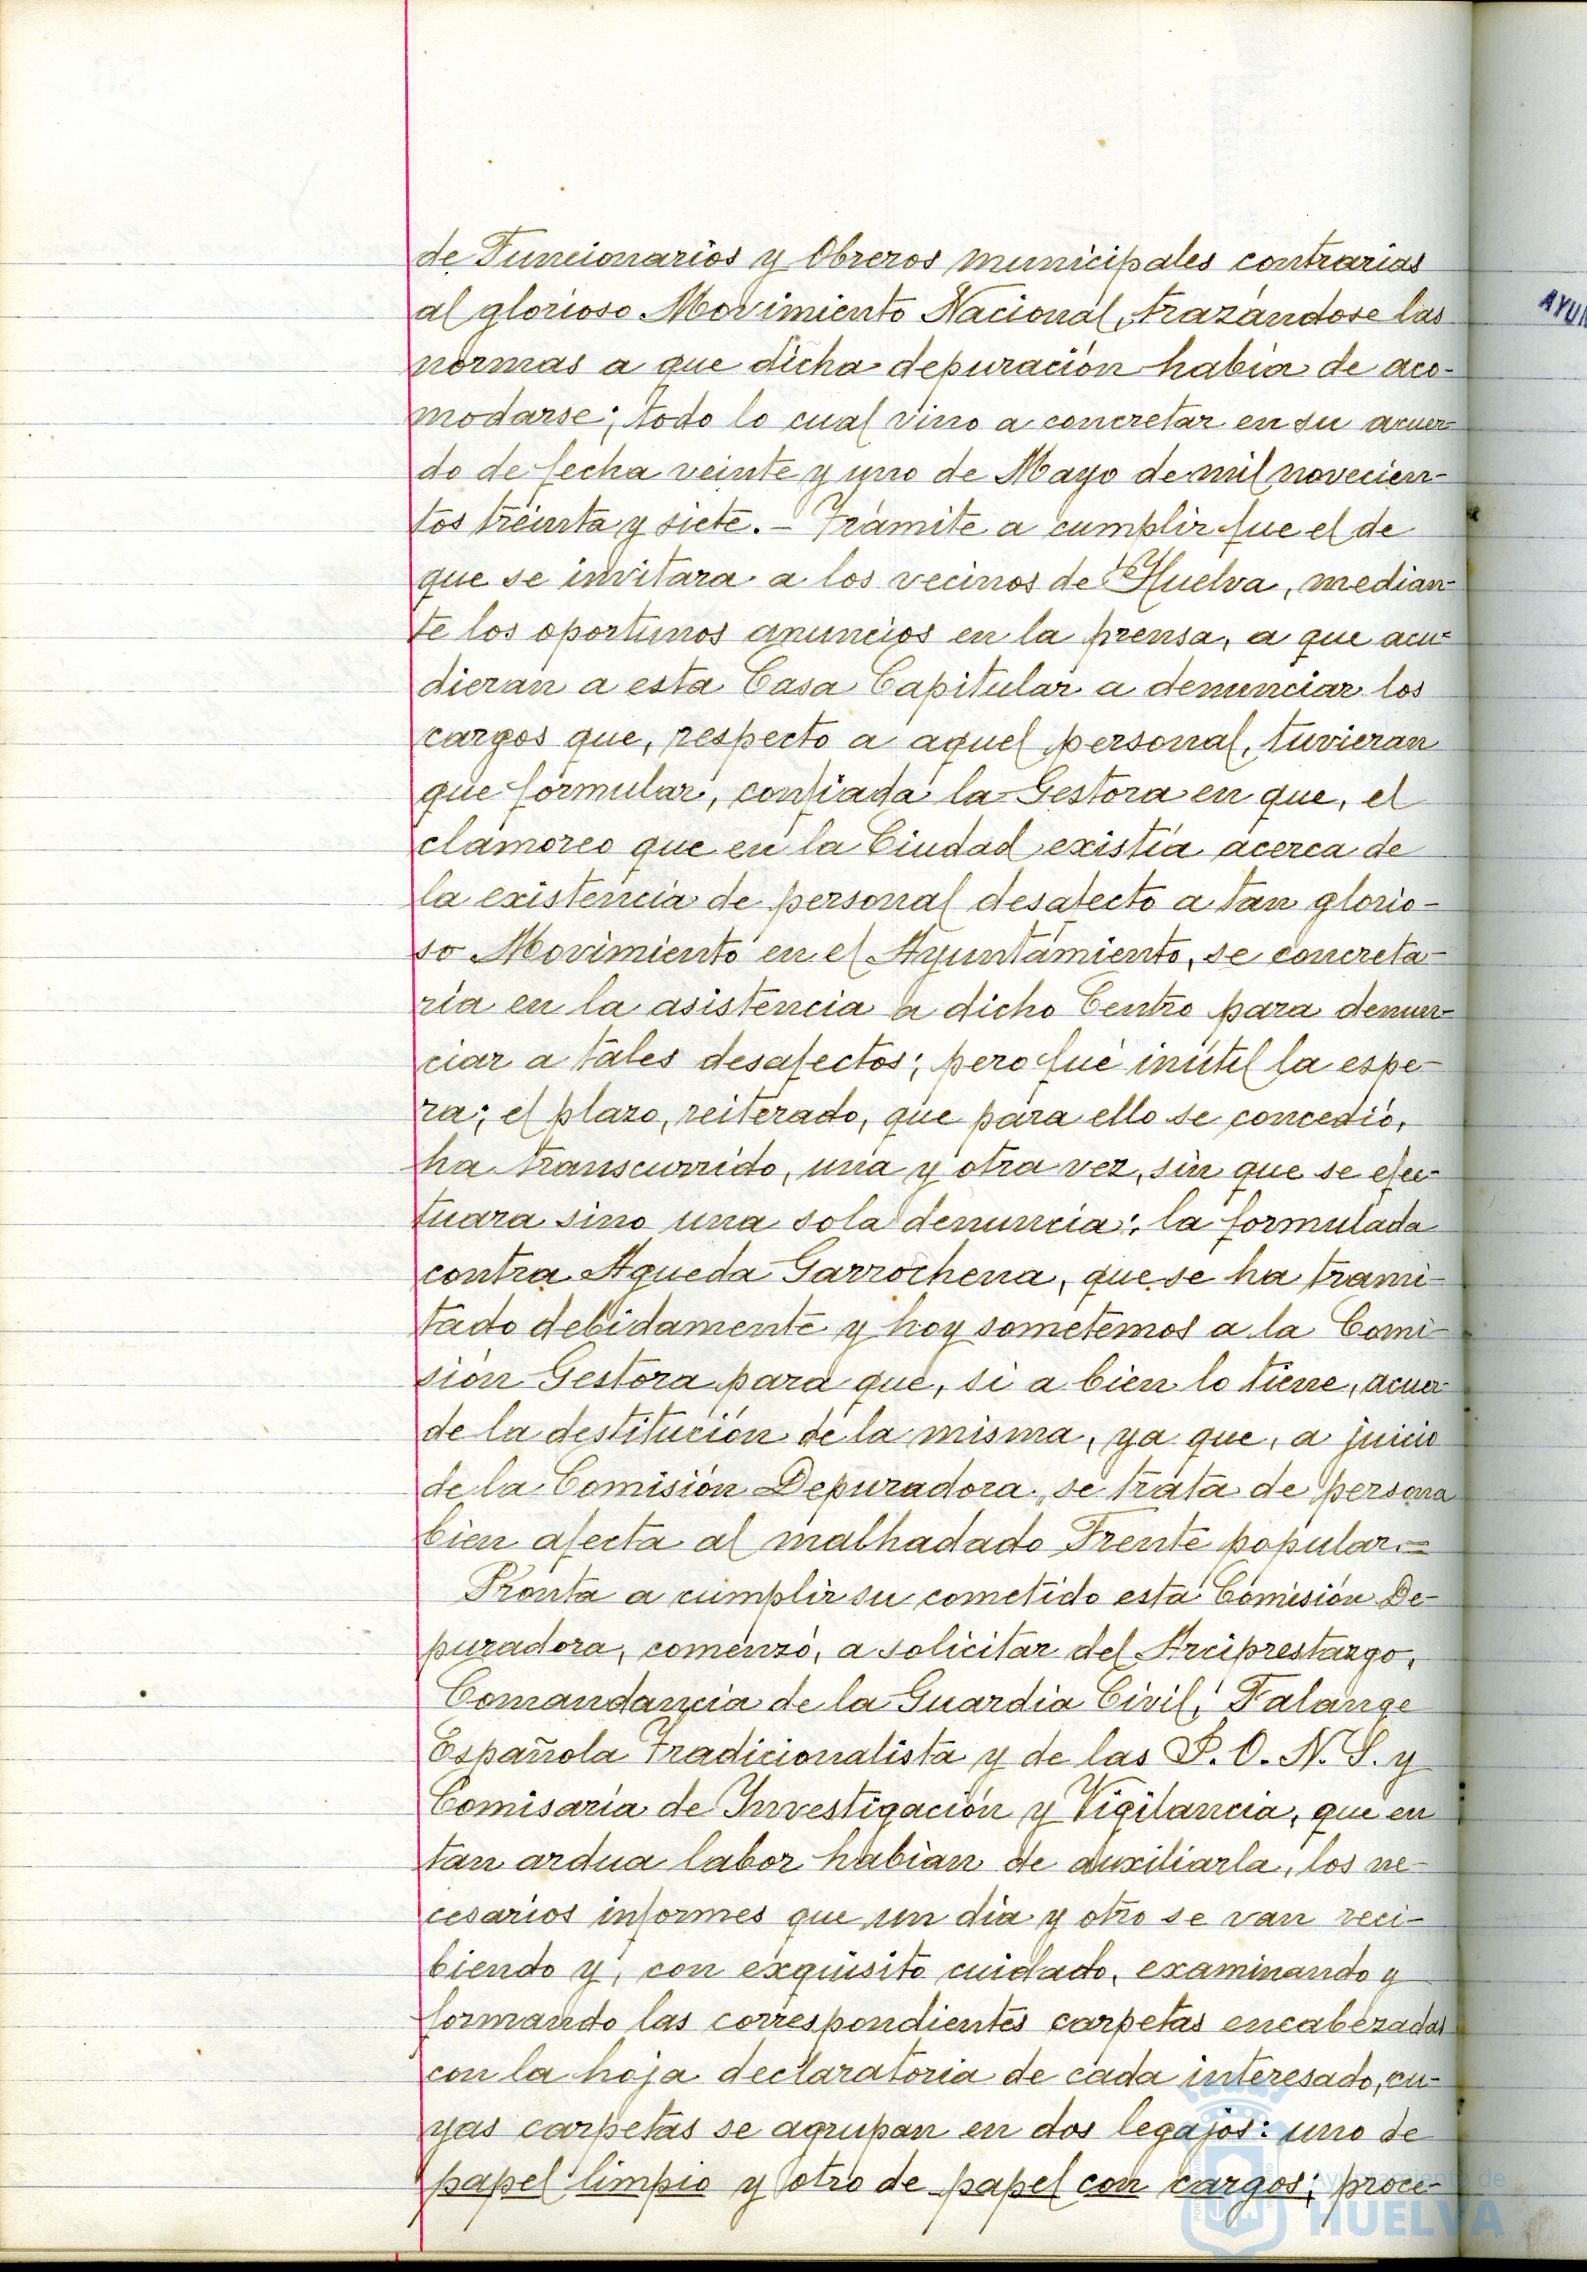 de Funcionarios y Obreros municipales contrarias
al glorioso Movimiento Nacional, trazándose las
normas a que dicha depuración había de aco-
modarse; todo lo cual vino a concretar en su acuer-
do de fecha veinte y uno de Mayo de mil novecien-
tos treinta y siete.- Trámite a cumplir fue el de
que se invitara a los vecinos de Huelva, median-
te los oportunos anuncios en la prensa, a que acu-
dieran a esta Casa Capitular a denunciar los
cargos que, respecto a aquel personal, tuvieran
que formular, confiada la Gestora en que, el
clamoreo que en la Ciudad existía acerca de
la existencia de personal desafecto a tan glorio-
so Movimiento en el Ayuntamiento, se concreta-
ría en la asistencia a dicho Centro para denun-
ciar a tales desafectos; pero fué inútil la espe-
ra; el plazo, reiterado, que para ello se concedió,
ha transcurrido, una y otra vez, sin que se efec-
tuara sino una sola denuncia: la formulada
contra Agueda Garrochena, que se ha trami-
tado debidamente y hoy sometemos a la Comi-
sión Gestora para que, si a bien lo tiene, acuer-
de la destitución de la misma, ya que, a juicio
de la Comisión Depuradora, se trata de persona
bien afecta al malhadado Frente popular.=
Pronta a cumplir su cometido esta Comisión De-
puradora, comenzó, a solicitar del Arciprestazgo,
Comandancia de la Guardia Civil, Falange
Española Tradicionalista y de las J.O.N.S. y
Comisaría de Investigación y Vigilancia, que en
tan ardua labor habían de auxiliarla, los ne-
cesarios informes que un día y otro se van reci-
biendo y, con exquisito cuidado, examinando y
formando las correspondientes carpetas encabezadas
con la hoja declaratoria de cada interesado, cu-
yas carpetas se agrupan en dos legajos: uno de
papel limpio y otro de papel con cargos; proce-
AYUN
Ayuntamiento de
HUELVA